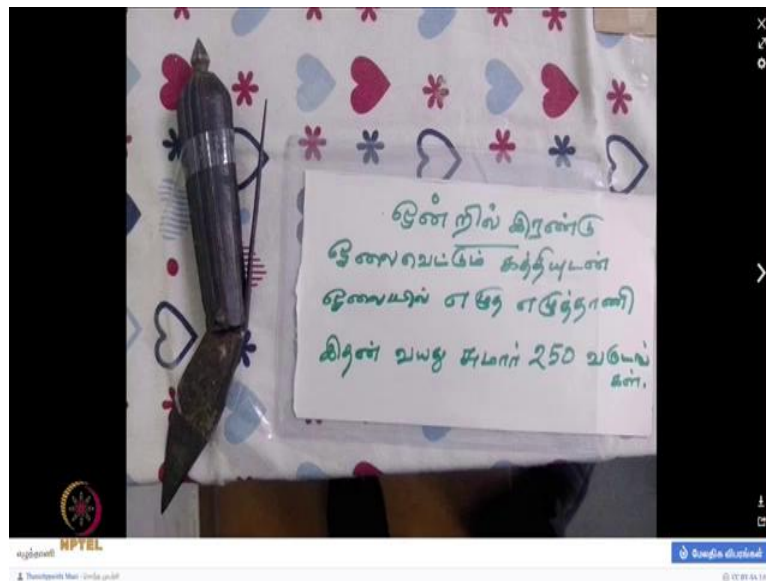 ஒன்றில் இரண்டு
ஓலைவெட்டும் கத்தியுடன்
ஓலையில் எழுத எழுத்தாணி
இதன் வயது சுமார் 250 வருடங்
கள்.
NPTEL
எழுத்தாணி
மேலதிக விபரங்கள்
CC BY-SA